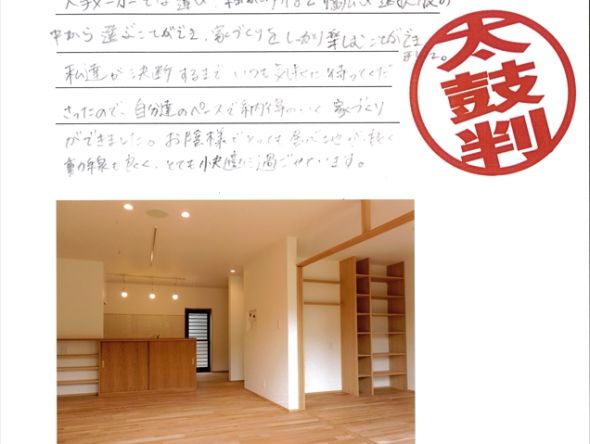 中から選ぶことができ、家づくりをしっかり楽しむことができ
ました。
私達が決断するまで いつも気長に待ってくだ
さったので、自分達のペースで納得のいく 家づくり
ができました。お陰様でとっても居心地が良く
動線も良く、とても快適に過ごせています。
太鼓判